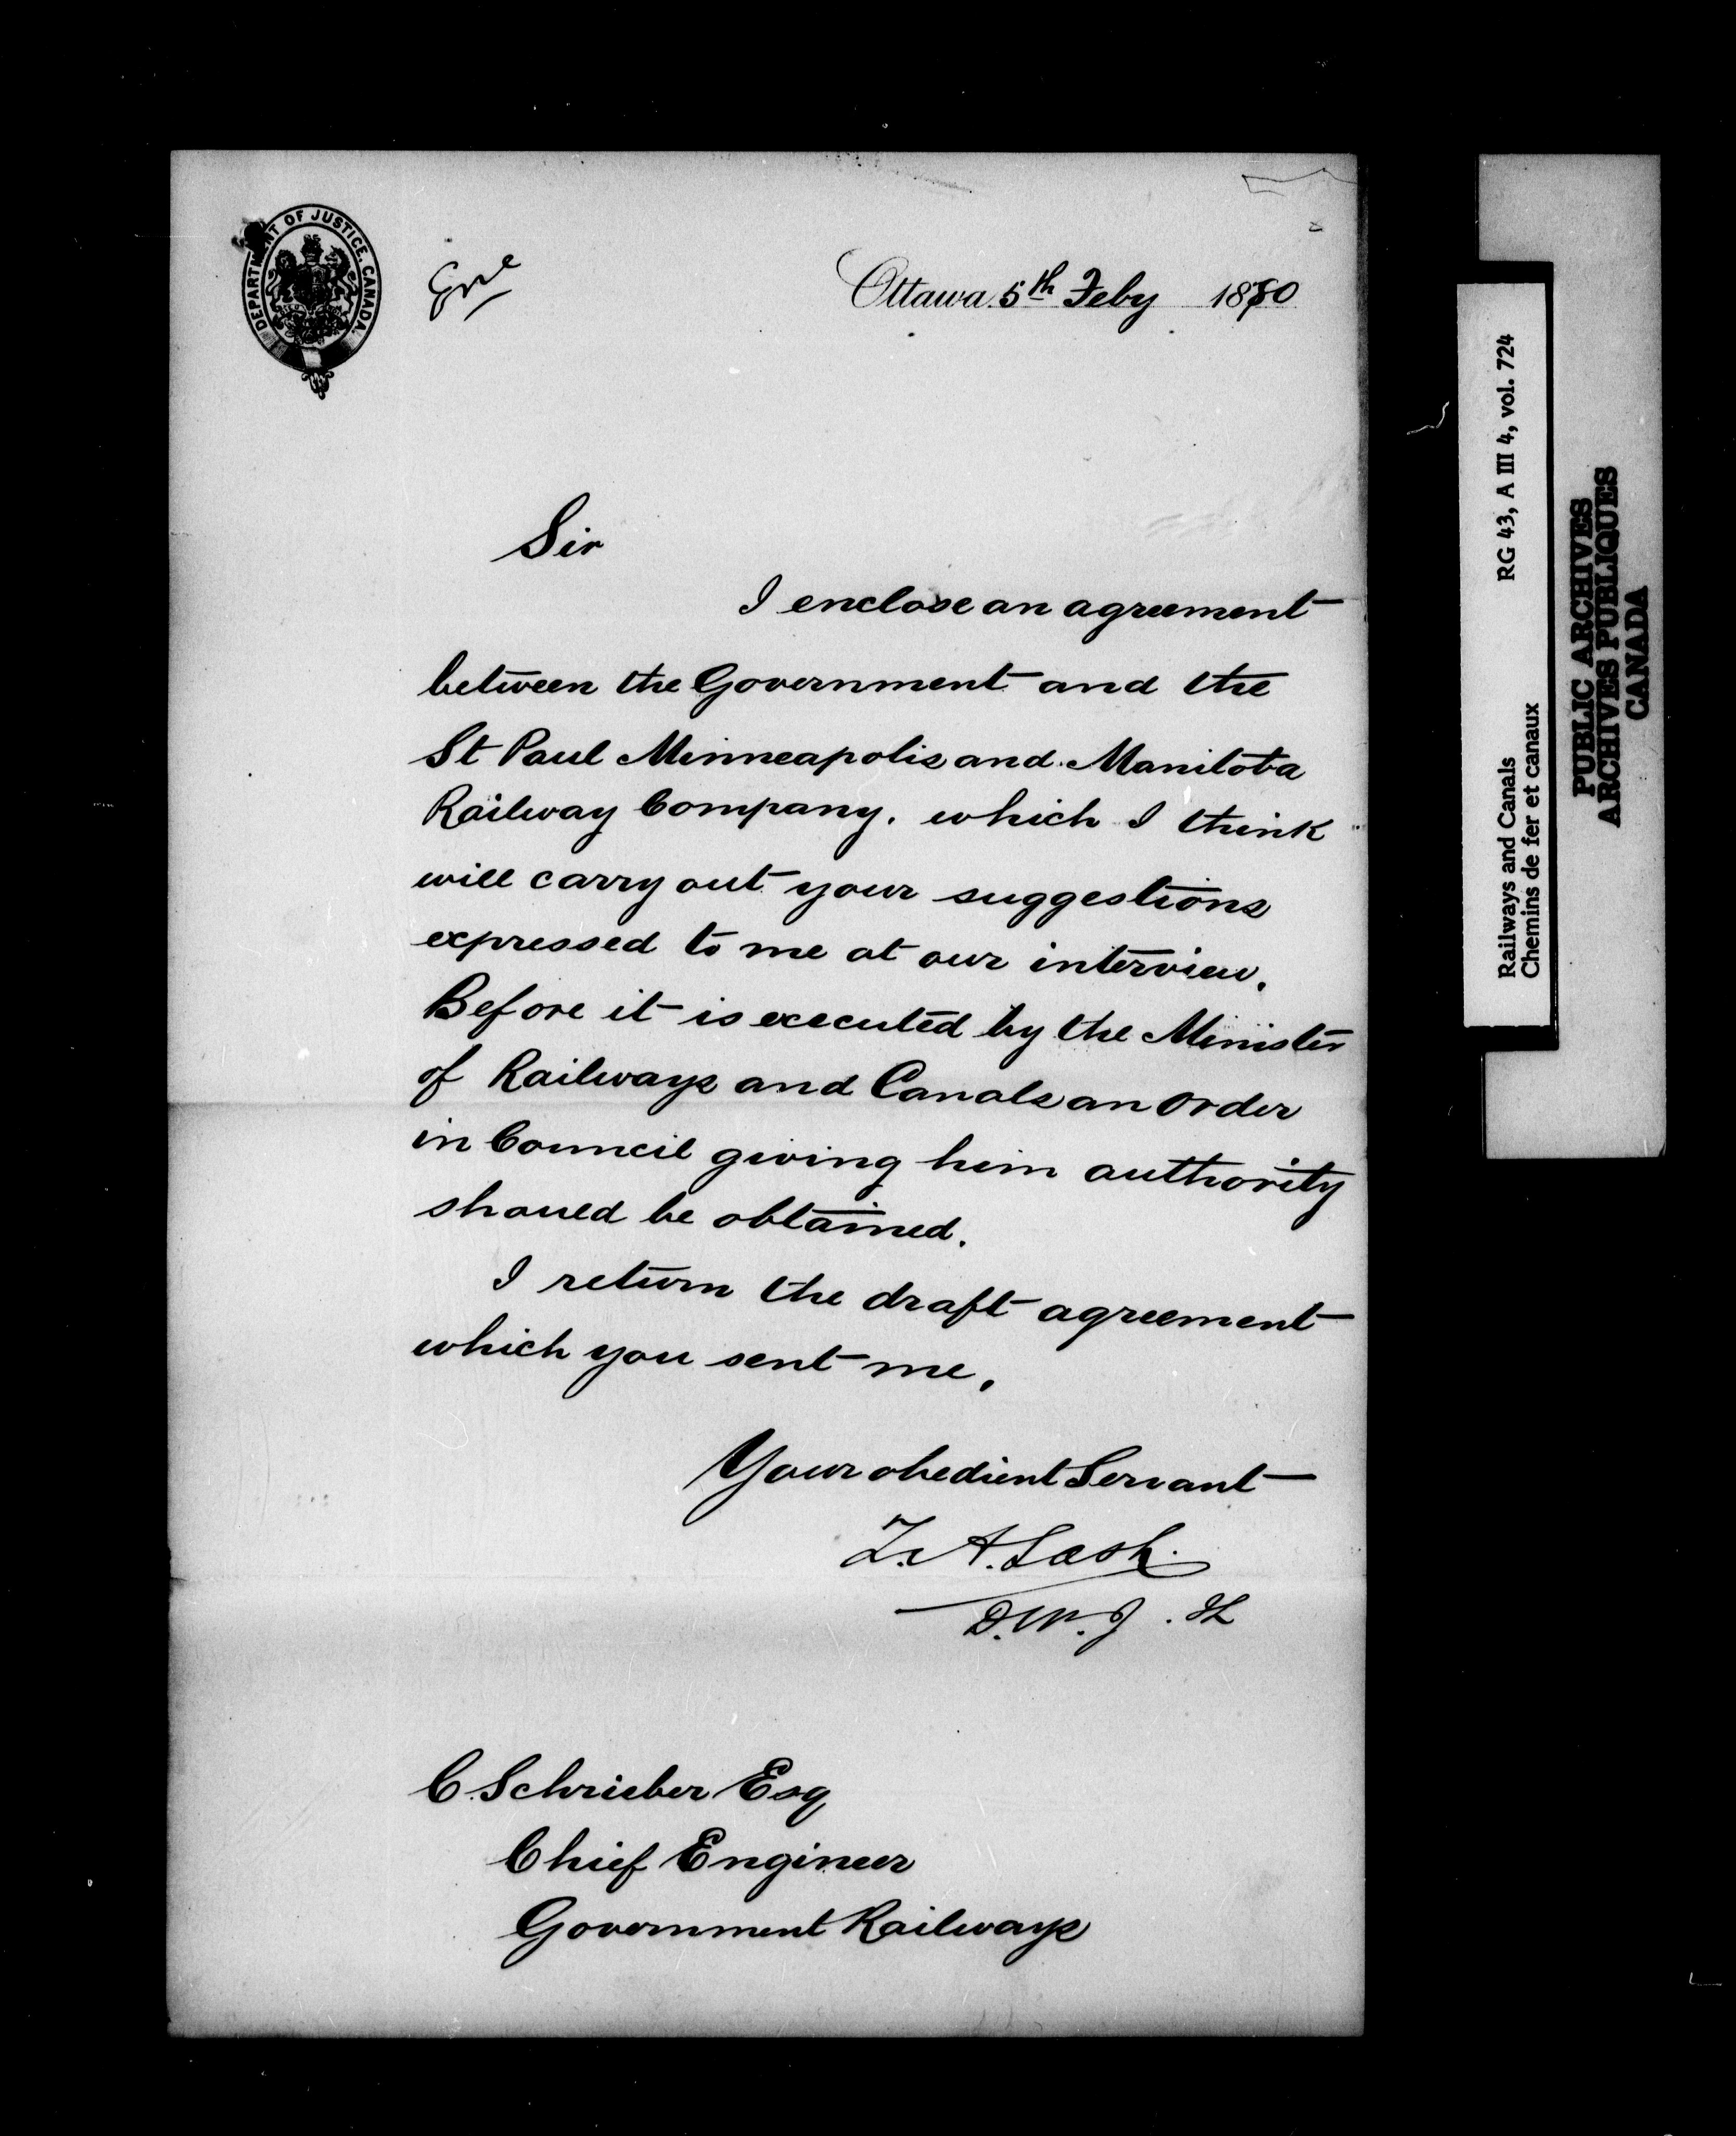 DEPARTMENT OF JUSTICE, CANADA.
Ottawa 5th Feby 1880
Sir
I enclose an agreement
between the Government and the
St Paul Minneapolis and Manitoba
Railway Company. which I think
will carry out your suggestions
expressed to me at our interview.
Before it is executed by the Minister
of Railways and Canals an order
in Council giving him authority
should be obtained.
I return the draft agreement
which you sent me.
Your obedient Servant
Z. A. Lash.
D. M. J.
C. Schrieber Esq
Chief Engineer
Government Railways
RG 43, A III 4, vol. 724
Railways and Canals
Chemins de fer et canaux
PUBLIC ARCHIVES
ARCHIVES PUBLIQUES
CANADA